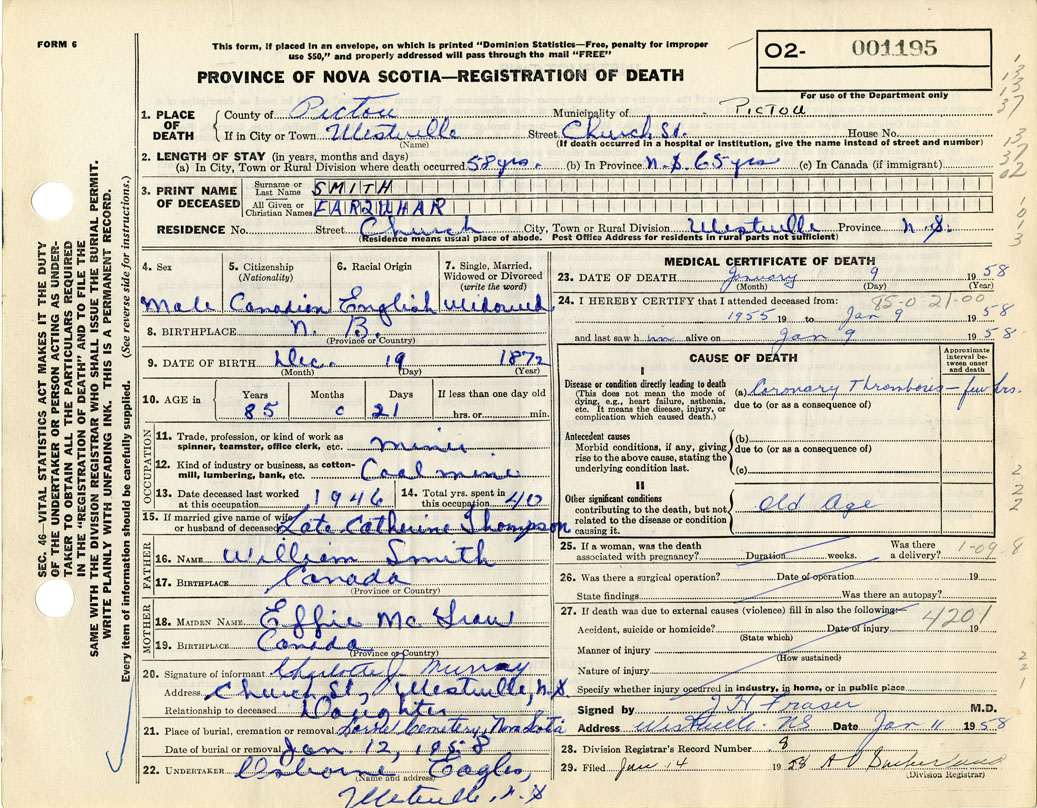 FORM 6
This form, if placed in an envelope, on which is printed "Dominion Statistics—Free, penalty for improper
use $50," and properly addressed will pass through the mail "FREE"
PROVINCE OF NOVA SCOTIA—REGISTRATION OF DEATH
O2- 001195
For use of the Department only
1. PLACE OF DEATH
County of Pictou Municipality of PICTOU
If in City or Town Westville Street Church St. House No.
(Name) (If death occurred in a hospital or institution, give the name instead of street and number)
2. LENGTH OF STAY (in years, months and days)
(a) In City, Town or Rural Division where death occurred 58 yrs. (b) In Province N.S 65 yrs (c) In Canada (if immigrant)
3. PRINT NAME OF DECEASED
Surname or Last Name SMITH
All Given or Christian Names FARQUHAR
RESIDENCE No. Street Church City, Town or Rural Division Westville Province N.S
(Residence means usual place of abode. Post Office Address for residents in rural parts not sufficient)
4. Sex 5. Citizenship (Nationality) 6. Racial Origin 7. Single, Married, Widowed or Divorced (write the word)
Male Canadian English Widowed
8. BIRTHPLACE N. B.
(Province or Country)
9. DATE OF BIRTH Dec. 19 1872
(Month) (Day) (Year)
10. AGE in Years Months Days If less than one day old
85 0 21 hrs. or min.
OCCUPATION
11. Trade, profession, or kind of work as
spinner, teamster, office clerk, etc. Miner
12. Kind of industry or business, as cotton-
mill, lumbering, bank, etc. Coal mine
13. Date deceased last worked at this occupation 1946 14. Total yrs. spent in this occupation 40
15. If married give name of wife or husband of deceased Late Catherine Thompson
FATHER
16. NAME William Smith
17. BIRTHPLACE Canada
(Province or Country)
MOTHER
18. MAIDEN NAME Effie Mc
19. BIRTHPLACE Canada
(Province or Country)
20. Signature of informant Charlotte J. Murray
Address Church St, Westville, N.S
Relationship to deceased Daughter
21. Place of burial, cremation or removal Cemetery, Nova Scotia
Date of burial or removal Jan 12, 1958
22. UNDERTAKER Osborne Eagles,
(Name and address)
Westville, N.S
MEDICAL CERTIFICATE OF DEATH
23. DATE OF DEATH January 9 1958
(Month) (Day) (Year)
24. I HEREBY CERTIFY that I attended deceased from: 85-0-21-00
1955 19 to Jan 9 1958
and last saw him alive on Jan 9 1958
CAUSE OF DEATH
Approximate interval between onset and death
I
Disease or condition directly leading to death
(This does not mean the mode of
dying, e.g., heart failure, asthenia,
etc. It means the disease, injury, or
complication which caused death.)
(a) Coronary Thrombosis — few hrs.
due to (or as a consequence of)
Antecedent causes
Morbid conditions, if any, giving
rise to the above cause, stating the
underlying condition last.
(b)
due to (or as a consequence of)
(c)
II
Other significant conditions
contributing to the death, but not
related to the disease or condition
causing it.
Old Age
25. If a woman, was the death
associated with pregnancy? Duration weeks. Was there a delivery? 1-09-8
26. Was there a surgical operation? Date of operation 19
State findings Was there an autopsy?
27. If death was due to external causes (violence) fill in also the following:
4201
Accident, suicide or homicide? Date of injury 19
(State which)
Manner of injury
(How sustained)
Nature of injury
Specify whether injury occurred in industry, in home, or in public place
Signed by J H Fraser M.D.
Address Westville NS Date Jan 11 1958
28. Division Registrar's Record Number 8
29. Filed Jan 14 1958
(Division Registrar)
SEC. 46—VITAL STATISTICS ACT MAKES IT THE DUTY
OF THE UNDERTAKER OR PERSON ACTING AS UNDER-
TAKER TO OBTAIN ALL THE PARTICULARS REQUIRED
IN THE "REGISTRATION OF DEATH" AND TO FILE THE
SAME WITH THE DIVISION REGISTRAR WHO SHALL ISSUE THE BURIAL PERMIT.
WRITE PLAINLY WITH UNFADING INK. THIS IS A PERMANENT RECORD.
Every item of information should be carefully supplied. (See reverse side for instructions.)
1
13
13
37
13
37
02
1
0
1
3
2
2
2
2
2
1